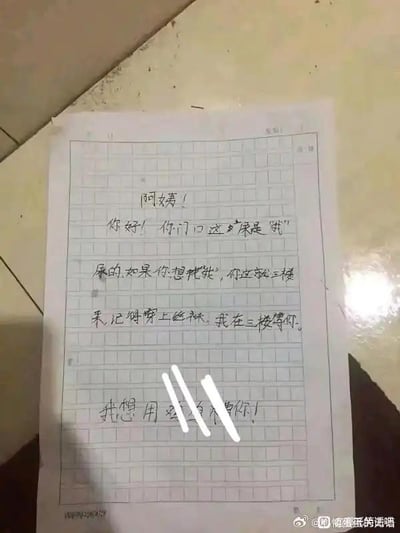 阿姨！
你好！你门口这尿是“我”
尿的.如果你想找“我”,你这就三楼
来记得穿上丝袜.我在三楼等你.
我想用 你！